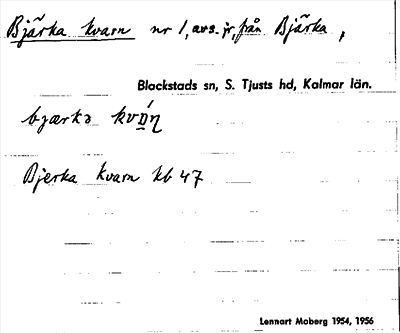 Bjärka kvarn nr 1, avs. jr. från Bjärka,
Blackstads sn, S. Tjusts hd, Kalmar län.
Bjerka kvarn kb 47
Lennart Moberg 1954, 1956